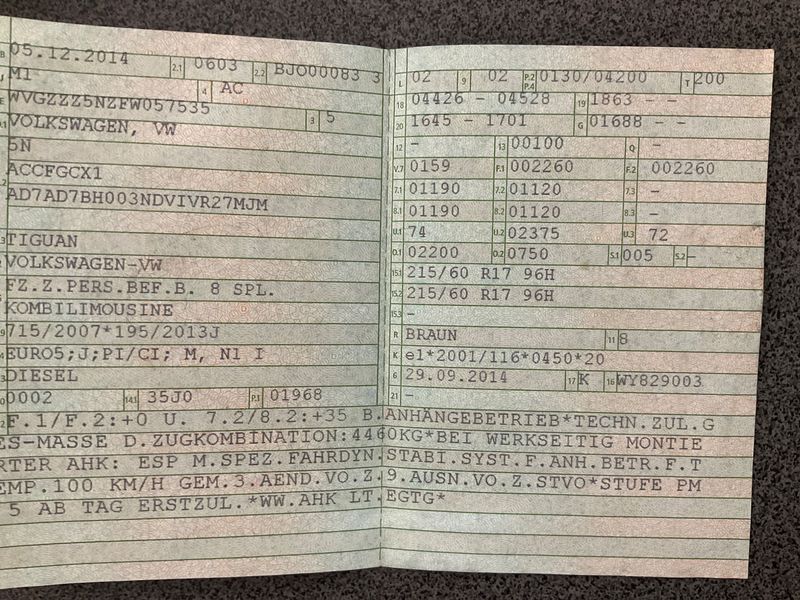 B 05.12.2014 2.1 0603 2.2 BJO00083 3
J M1 4 AC
E WVGZZZ5NZFW057535 3 5
D.1 VOLKSWAGEN, VW
5N
D.2 ACCFGCX1
AD7AD7BH003NDVIVR27MJM
D.3 TIGUAN
2 VOLKSWAGEN-VW
5 FZ.Z.PERS.BEF.B. 8 SPL.
KOMBILIMOUSINE
V.9 715/2007*195/2013J
14 EURO5;J;PI/CI; M, N1 I
P.3 DIESEL
10 0002 14.1 35J0 P.1 01968
L 02 9 02 P.2 P.4 0130/04200 T 200
18 04426 - 04528 19 1863 - -
20 1645 - 1701 G 01688 - -
12 - 13 00100 Q -
V.7 0159 F.1 002260 F.2 002260
7.1 01190 7.2 01120 7.3 -
8.1 01190 8.2 01120 8.3 -
U.1 74 U.2 02375 U.3 72
O.1 02200 O.2 0750 S.1 005 S.2 -
15.1 215/60 R17 96H
15.2 215/60 R17 96H
15.3 -
R BRAUN 11 8
K e1*2001/116*0450*20
6 29.09.2014 17 K 16 WY829003
21 -
22 F.1/F.2:+0 U. 7.2/8.2:+35 B.ANHÄNGEBETRIEB*TECHN.ZUL.G
ES-MASSE D.ZUGKOMBINATION:4460KG*BEI WERKSEITIG MONTIE
RTER AHK: ESP M.SPEZ.FAHRDYN.STABI.SYST.F.ANH.BETR.F.T
EMP.100 KM/H GEM.3.AEND.VO.Z.9.AUSN.VO.Z.STVO*STUFE PM
5 AB TAG ERSTZUL.*WW.AHK LT.EGTG*